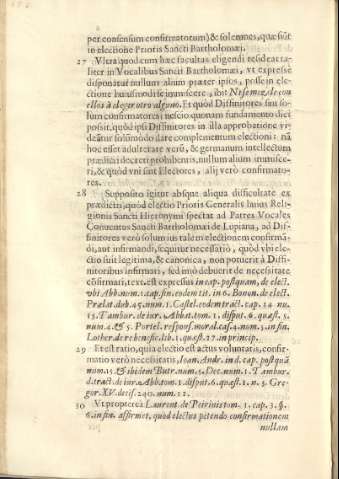 per consensum confirmatorum) & solemnes, quæ sūt
in electione Prioris Sancti Bartholomæi.
27 Vltra quod cum hæc facultas eligendi resideat ta-
liter in Vocalibus Sancti Bartholomæi, vt expressè
disponatur nullum alium præter ipsos, posse in ele-
ctione huiusmodi se immiscere, ibi: Ne se mezclè con
ellos à elegir otro alguno. Et quòd Diffinitores sint so-
lum confirmatores: nescio quonam fundamento dici
possit, quòd ipsi Diffinitores in illa approbatione vi-
deātur solummodo dare complementum electioni: nā
hoc esset adulterare verū, & germanum intellectum
prædicti decreti prohibentis, nullum alium immisce-
ri, & quòd vni sint Electores, alij verò confirmato-
res.
28 Supposito igitur absque aliqua difficultate ex
prædictis, quòd electio Prioris Generalis huius Reli-
gionis Sancti Hieronymi spectat ad Patres Vocales
Conuentus Sancti Bartholomæi de Lupiana, ad Dif-
finitores verò solum ius talem electionem confirmā-
di, aut infirmandi, sequitur necessariò, quòd vbi ele-
ctio suit legitima, & canonica, non potuerit à Diffi-
nitoribus infirmari, sed imò debuerit de necessitate
cōfirmari, text. est expressus in cap. postquam, de elect.
vbi Abb. num. 1. cap. fin. eodem tit. in 6. Bonon. de elect.
Prælat. dub. 45. num. 1. Castel.
15. Tambur. de iur. Abbat. tom. 1. disput. 6. quæst. 5.
num. 4. & 5. Portel. respons. moral. cas. 4. num. 3. in fin.
Lother. de re benefic. lib. 1. quæst. 17. in princip.
29 Et est ratio, quia electio est actus voluntatis, confir-
matio verò necessitatis, Ioan. Andr. ind. cap. postquā
num. 15. & ibidem Butr. num. 5. Dec. num. 1. Tambur.
d. tract. de iur. Abb. tom. 1. disput. 6. quæst. 1. n. 5. Gre-
gor. XV. decis. 240. num. 12.
30 Vt propterea Laurent. de Peirinis tom. 1. cap. 3. §.
6. in fin. affirmet, quòd electus petendo confirmationem
nullam